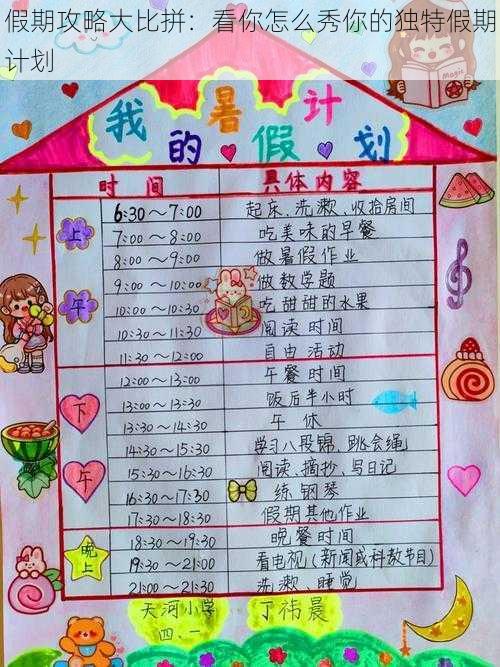 假期攻略大比拼：看你怎么秀你的独特假期
计划
Magic
我的暑假计划
时间 具体内容
上午
6:30～7:00 起床、洗漱、收拾房间
7:00～8:00 吃美味的早餐
8:00～9:00 做暑假作业
9:00～10:00 做数学题
10:00～10:30 吃甜甜的水果
10:30～11:30 阅读时间
11:30～12:00 自由活动
下午
12:00～13:00 午餐时间
13:00～14:00 饭后半小时
13:30～14:30 午休
14:30～15:30 学习八段锦、跳会绳
15:30～16:30 阅读、摘抄、写日记
16:30～17:30 练钢琴
17:30～18:30 假期其他作业
晚上
18:30～19:30 晚餐时间
19:30～21:00 看电视(新闻或科教节目)
21:00～22:00 洗漱 睡觉
天河小学 丁祎晨
四.一